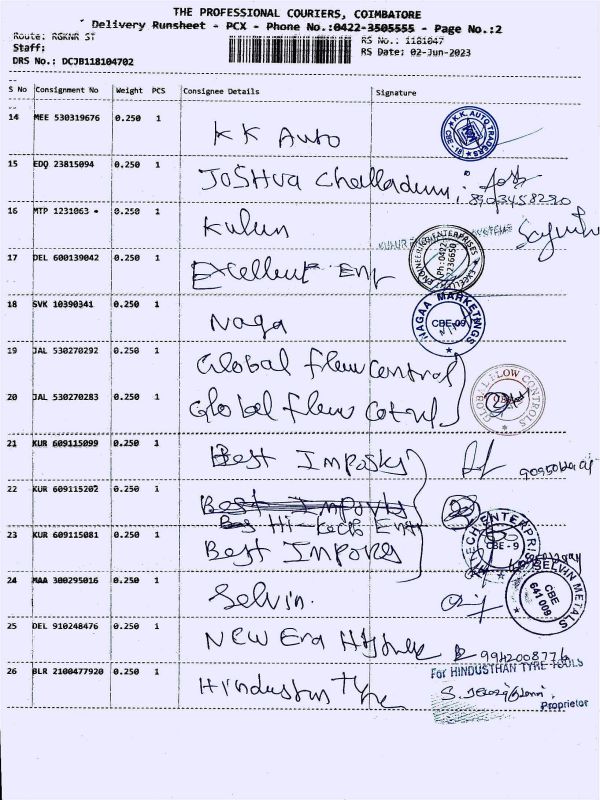 THE PROFESSIONAL COURIERS, COIMBATORE
Delivery Runsheet - PCX - Phone No.:0422-3505555 - Page No.:2
Route: RGKNR ST
RS No.: 1181047
Staff:
RS Date: 02-Jun-2023
DRS No.: DCJB118104702
S No Consignment No Weight PCS Consignee Details Signature
14 MEE 530319676 0.250 1 KK Auto
K.K. AUTO TRADERS CBE-18
15 EDQ 23815094 0.250 1 JOSHUA
16 MTP 1231063 0.250 1 Kulun
17 DEL 600139042 0.250 1 Excellent Ent
ENTERPRISES
18 SVK 10390341 0.250 1 Naga
NAGAA MARKETINGS CBE-09
19 JAL 530270292 0.250 1 Global Flow Control
20 JAL 530270283 0.250 1 Global Flow
GLOBAL FLOW CONTROLS
21 KUR 609115099 0.250 1 Best
22 KUR 609115202 0.250 1 Best Imports
Hi-tech Ent
23 KUR 609115081 0.250 1 Best Impors
ENTERPRISES CBE - 9
24 MAA 300295016 0.250 1 Selvin.
SELVIN METALS CBE 641 009
25 DEL 910248476 0.250 1 New Era
26 BLR 2100477920 0.250 1 Hindustan Tyre
For HINDUSTHAN TYRE TOOLS
Proprietor